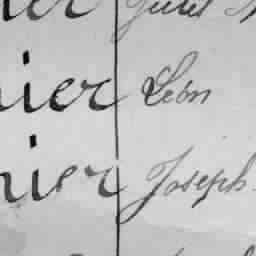 Jules
ier Léon
nier Joseph